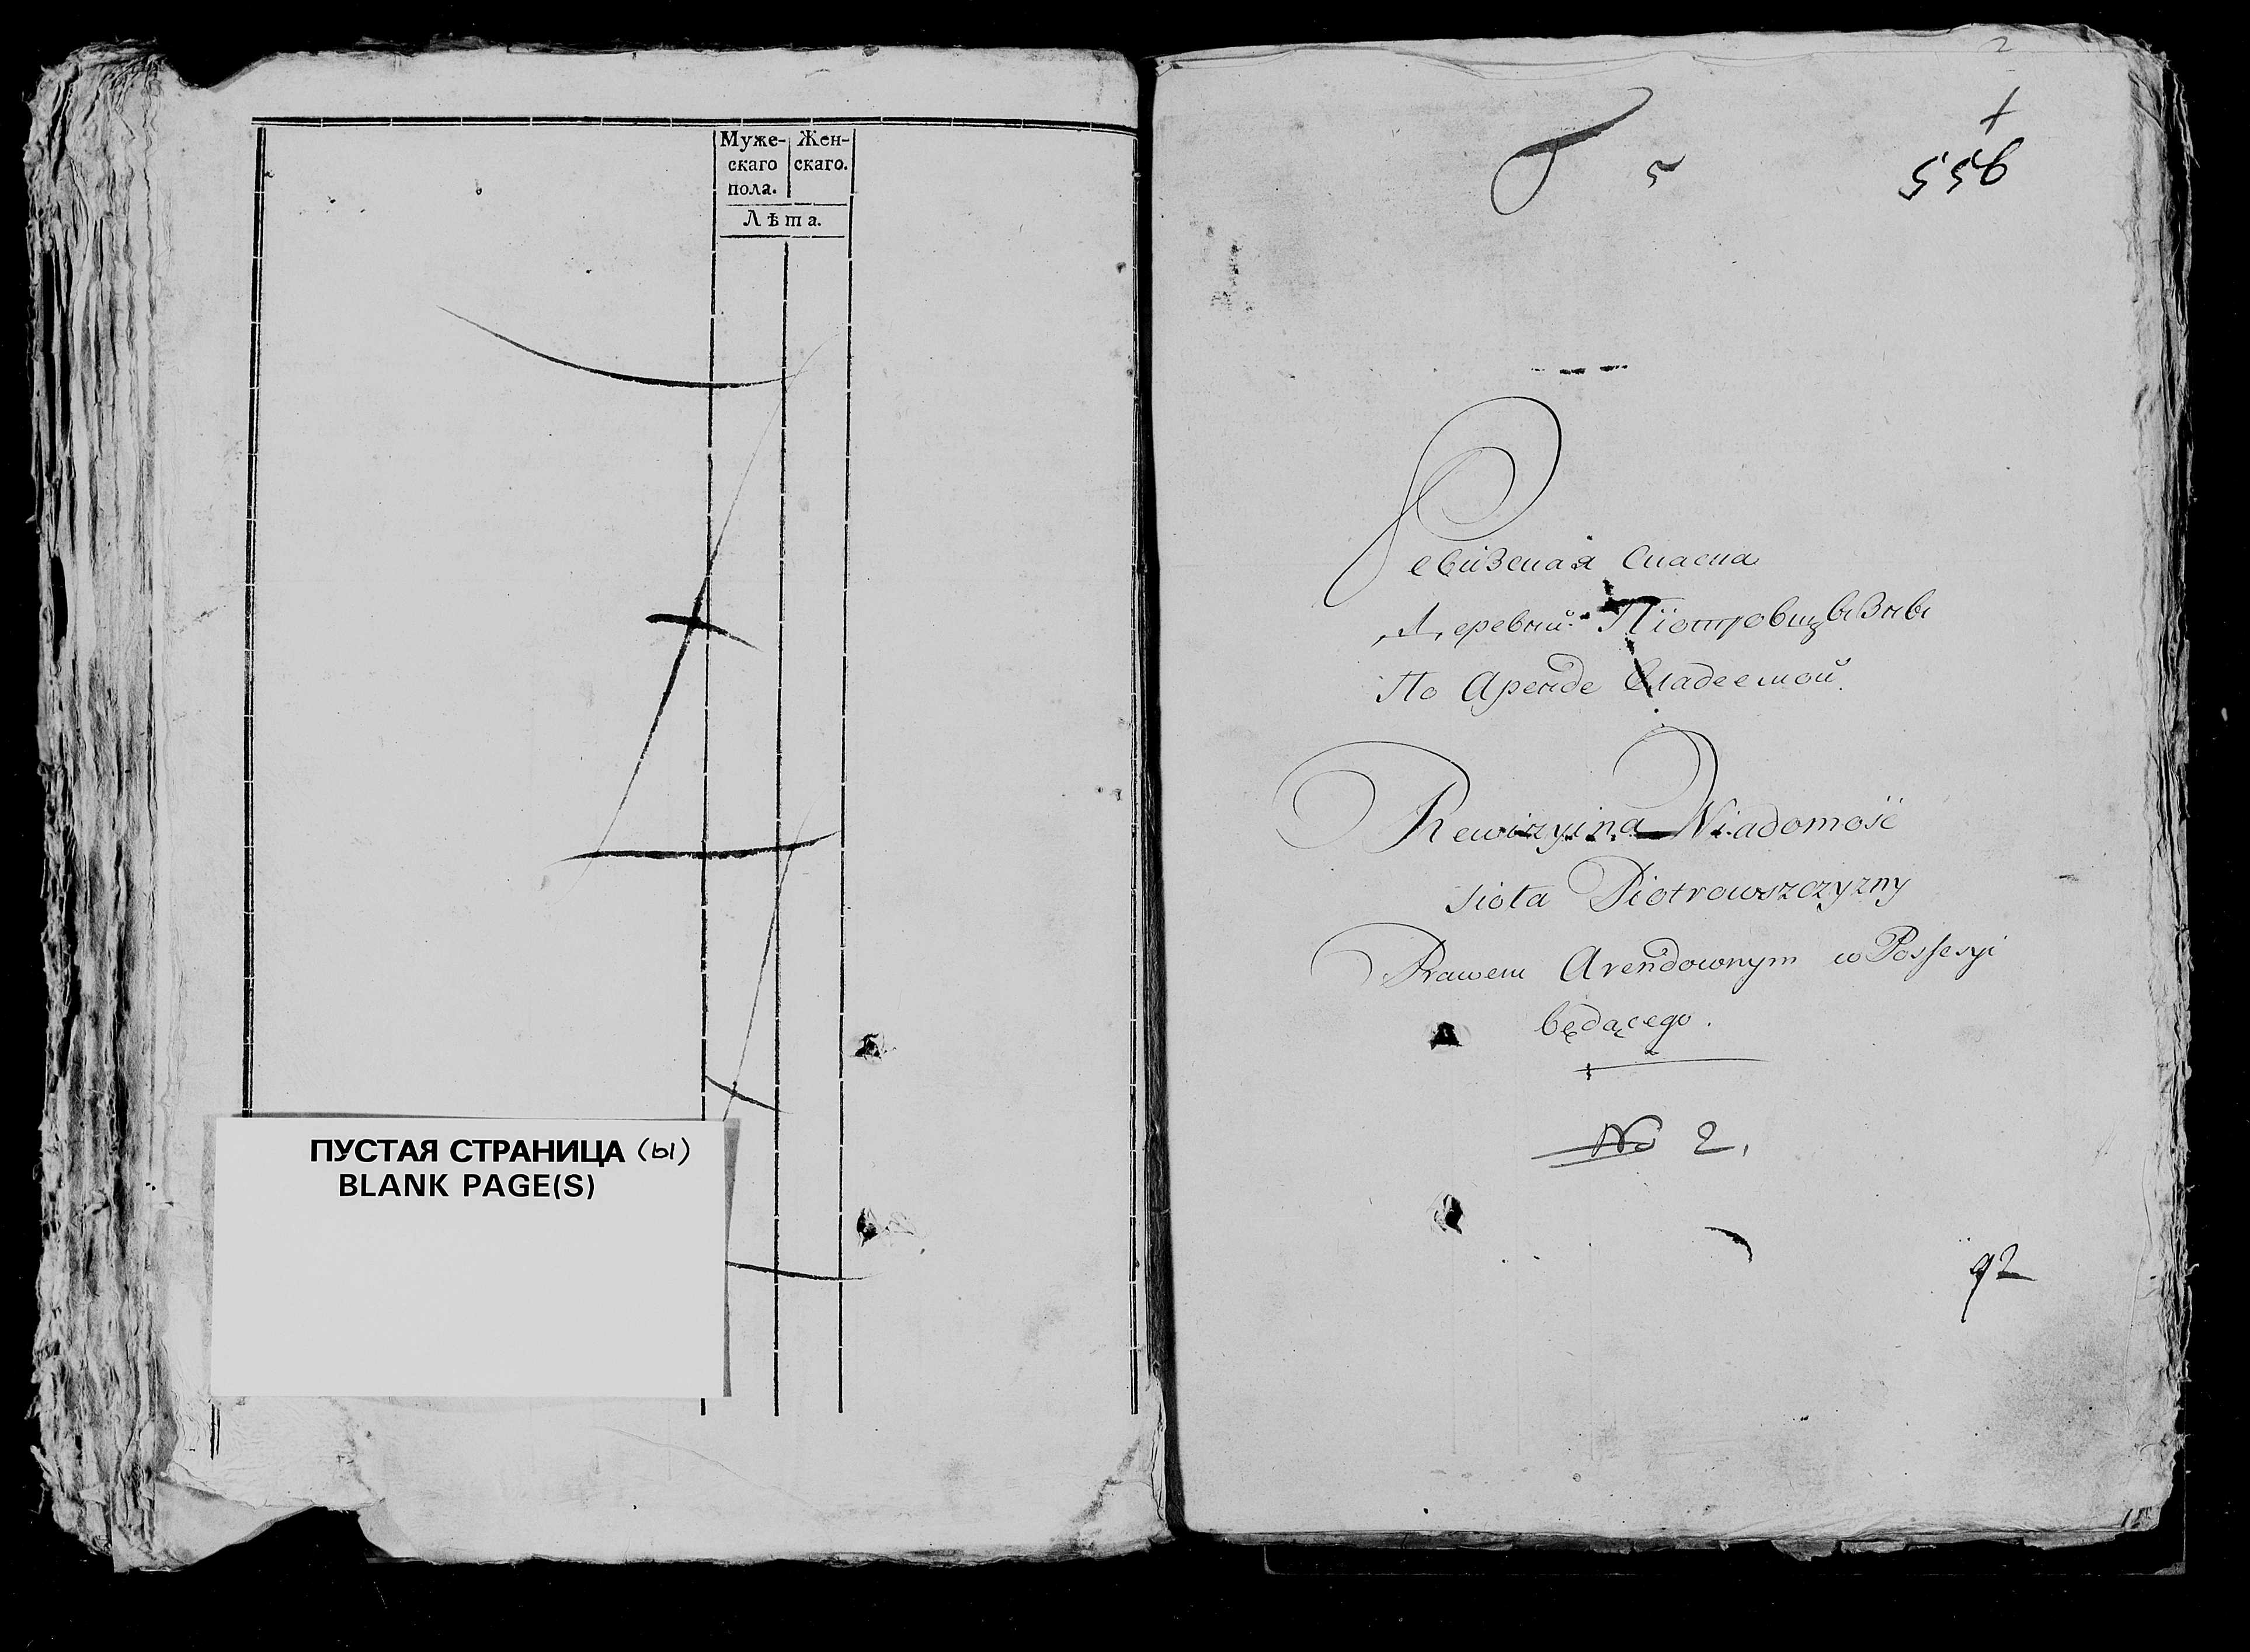 Муже- Жен-
скаго скаго.
пола.
Лѣта.
ПУСТАЯ СТРАНИЦА (ы)
BLANK PAGE(S)
2
5
Ревизская Сказка
Деревни Піотровщызны
По Аренде владеемой.
Rewizyina Wiadomość
sioła Piotrowszczyzny
Prawem Arendownym w Possesyi
będącego.
No 2,
92